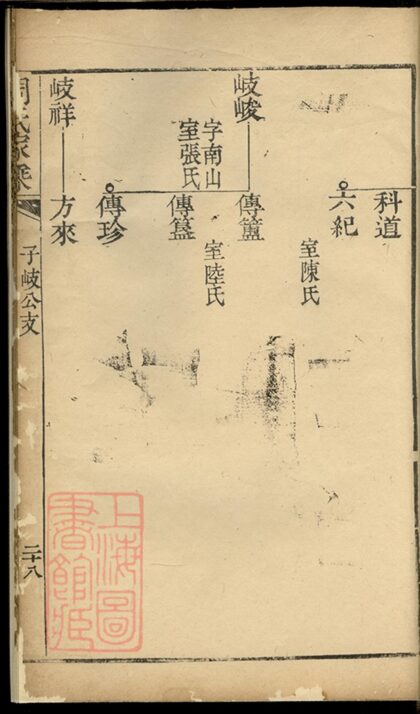 科道
六紀
室陳氏
岐峻
字南山
室張氏
傳簠
室陸氏
傳簋
傳珍
岐祥
方來
周氏家
子岐公支
二十八
上海圖
書館藏